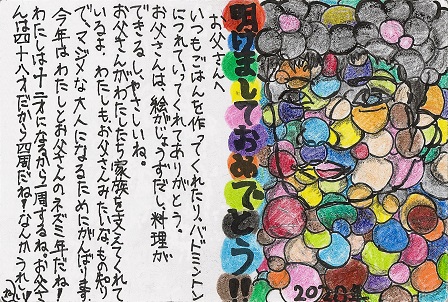 明けましておめでとう!!
お父さんへ
いつもごはんを作ってくれたり、バドミントン
につれていってくれてありがとう。
お父さんは、絵がじょうずだし、料理が
できるし、やさしいね。
お父さんがわたしたち家族を支えてくれて
いるよ。わたしもお父さんみたいな、ものやり
で、マジメな大人になるためにがんばります。
今年は、わたしとお父さんのネズミ年だね!
わたしは十二才になるから一周するね。お父さ
んは四十八才だから四周だね!なんかうれしい
2020年